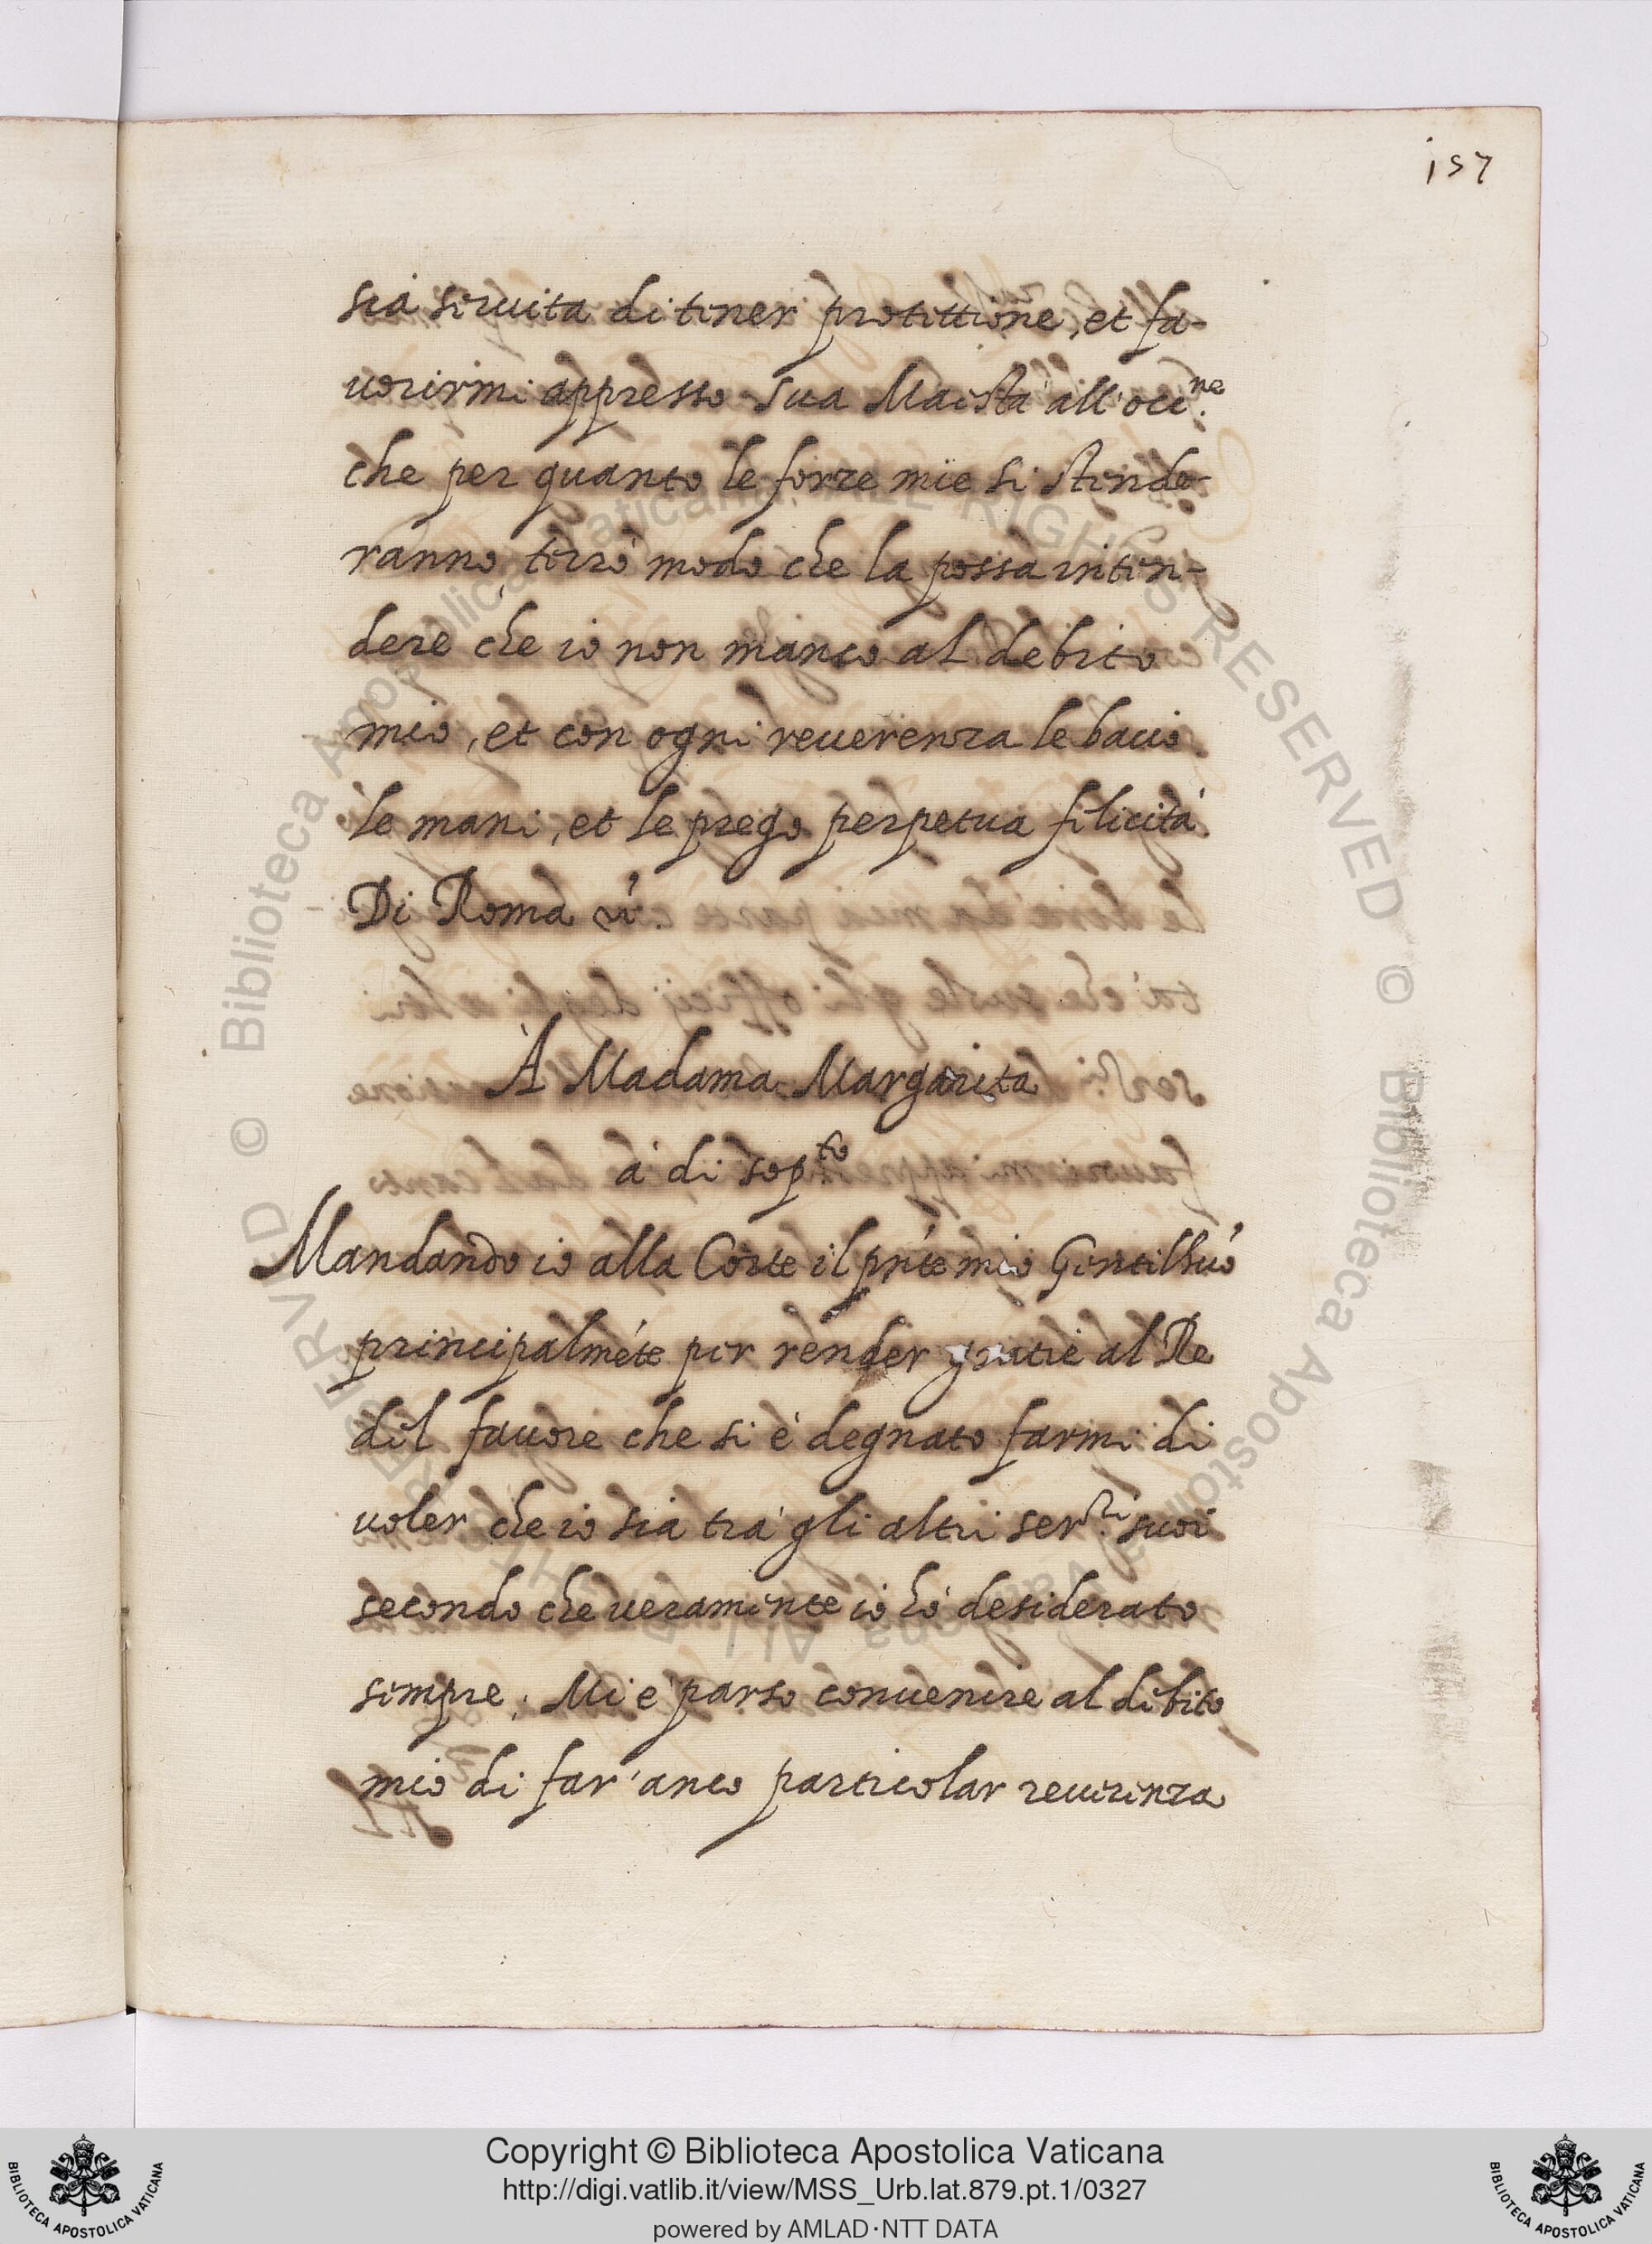 157
sia seruita di tener protettione, et fa-
uorirmi appresso Sua Maestà all'occ.ne
che per quanto le forze mie si stende-
ranno, terrò modo che la possa inten-
dere che io non manco al debito
mio, et con ogni reuerenza le bacio
le mani, et le prego perpetua felicità.
Di Roma &.
À Madama Margarita
à di sop.to
Mandando io alla Corte il pñte mio Gentilhuõ
principalmẽte per render gratie al Re
del fauore che si è degnato farmi di
uoler che io sia trà gli altri ser.ri suoi
secondo che ueramente io hò desiderato
sempre; Mi è parso conuenire al debito
mio di far' anco particolar reuerenza
Copyright © Biblioteca Apostolica Vaticana
http://digi.vatlib.it/view/MSS_Urb.lat.879.pt.1/0327
powered by AMLAD·NTT DATA
BIBLIOTECA APOSTOLICA VATICANA
BIBLIOTECA APOSTOLICA VATICANA
© Biblioteca Apostolica Vaticana ALL RIGHTS RESERVED © Biblioteca Apostolica Vaticana ALL RIGHTS RESERVED